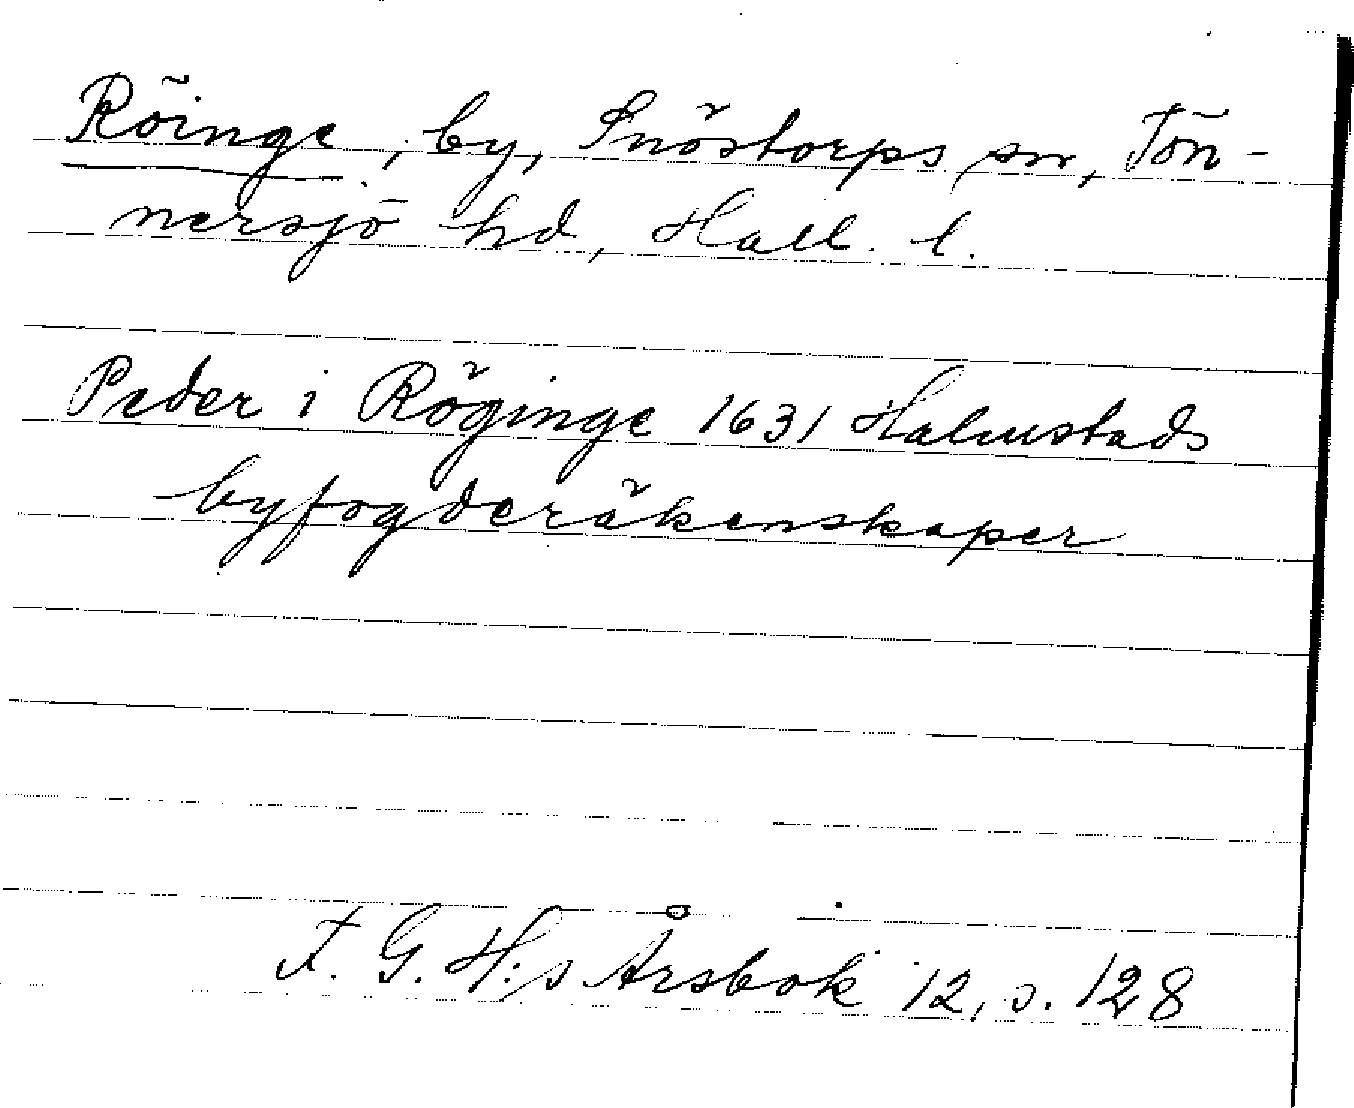 Röinge, by, Snöstorps sn, Tön-
nersjö hd, Hall. l.
Peder i Röginge 1631 Halmstads
byfogderäkenskaper
F. G. H:s Årsbok 12, s. 128